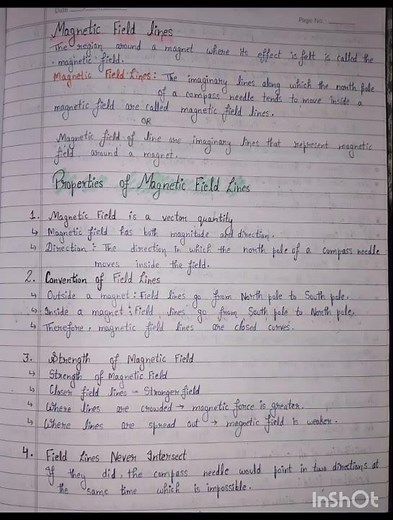 Date
Page No.
Magnetic Field lines
The region around a magnet where its effect is felt is called the
magnetic field.
Magnetic Field Lines : The imaginary lines along which the north pole
of a compass needle tends to move inside a
magnetic field are called magnetic field lines.
OR
Magnetic field of line are imaginary lines that represent magnetic
field around a magnet.
Properties of Magnetic Field Lines
1. Magnetic Field is a vector quantity
↳ Magnetic field has both magnitude and direction.
↳ Direction : The direction in which the north pole of a compass needle
moves inside the field.
2. Convention of Field Lines
↳ Outside a magnet : Field lines go from North pole to South pole.
↳ Inside a magnet : Field lines go from South pole to North pole.
↳ Therefore, magnetic field lines are closed curves.
3. Strength of Magnetic Field
↳ Strength of Magnetic Field
↳ Closer field lines → Stronger field
↳ Where lines are crowded → magnetic force is greater.
↳ Where lines are spread out → magnetic field is weaker.
4. Field Lines Never Intersect
If they did, the compass needle would point in two directions at
the same time which is impossible.
InShOt